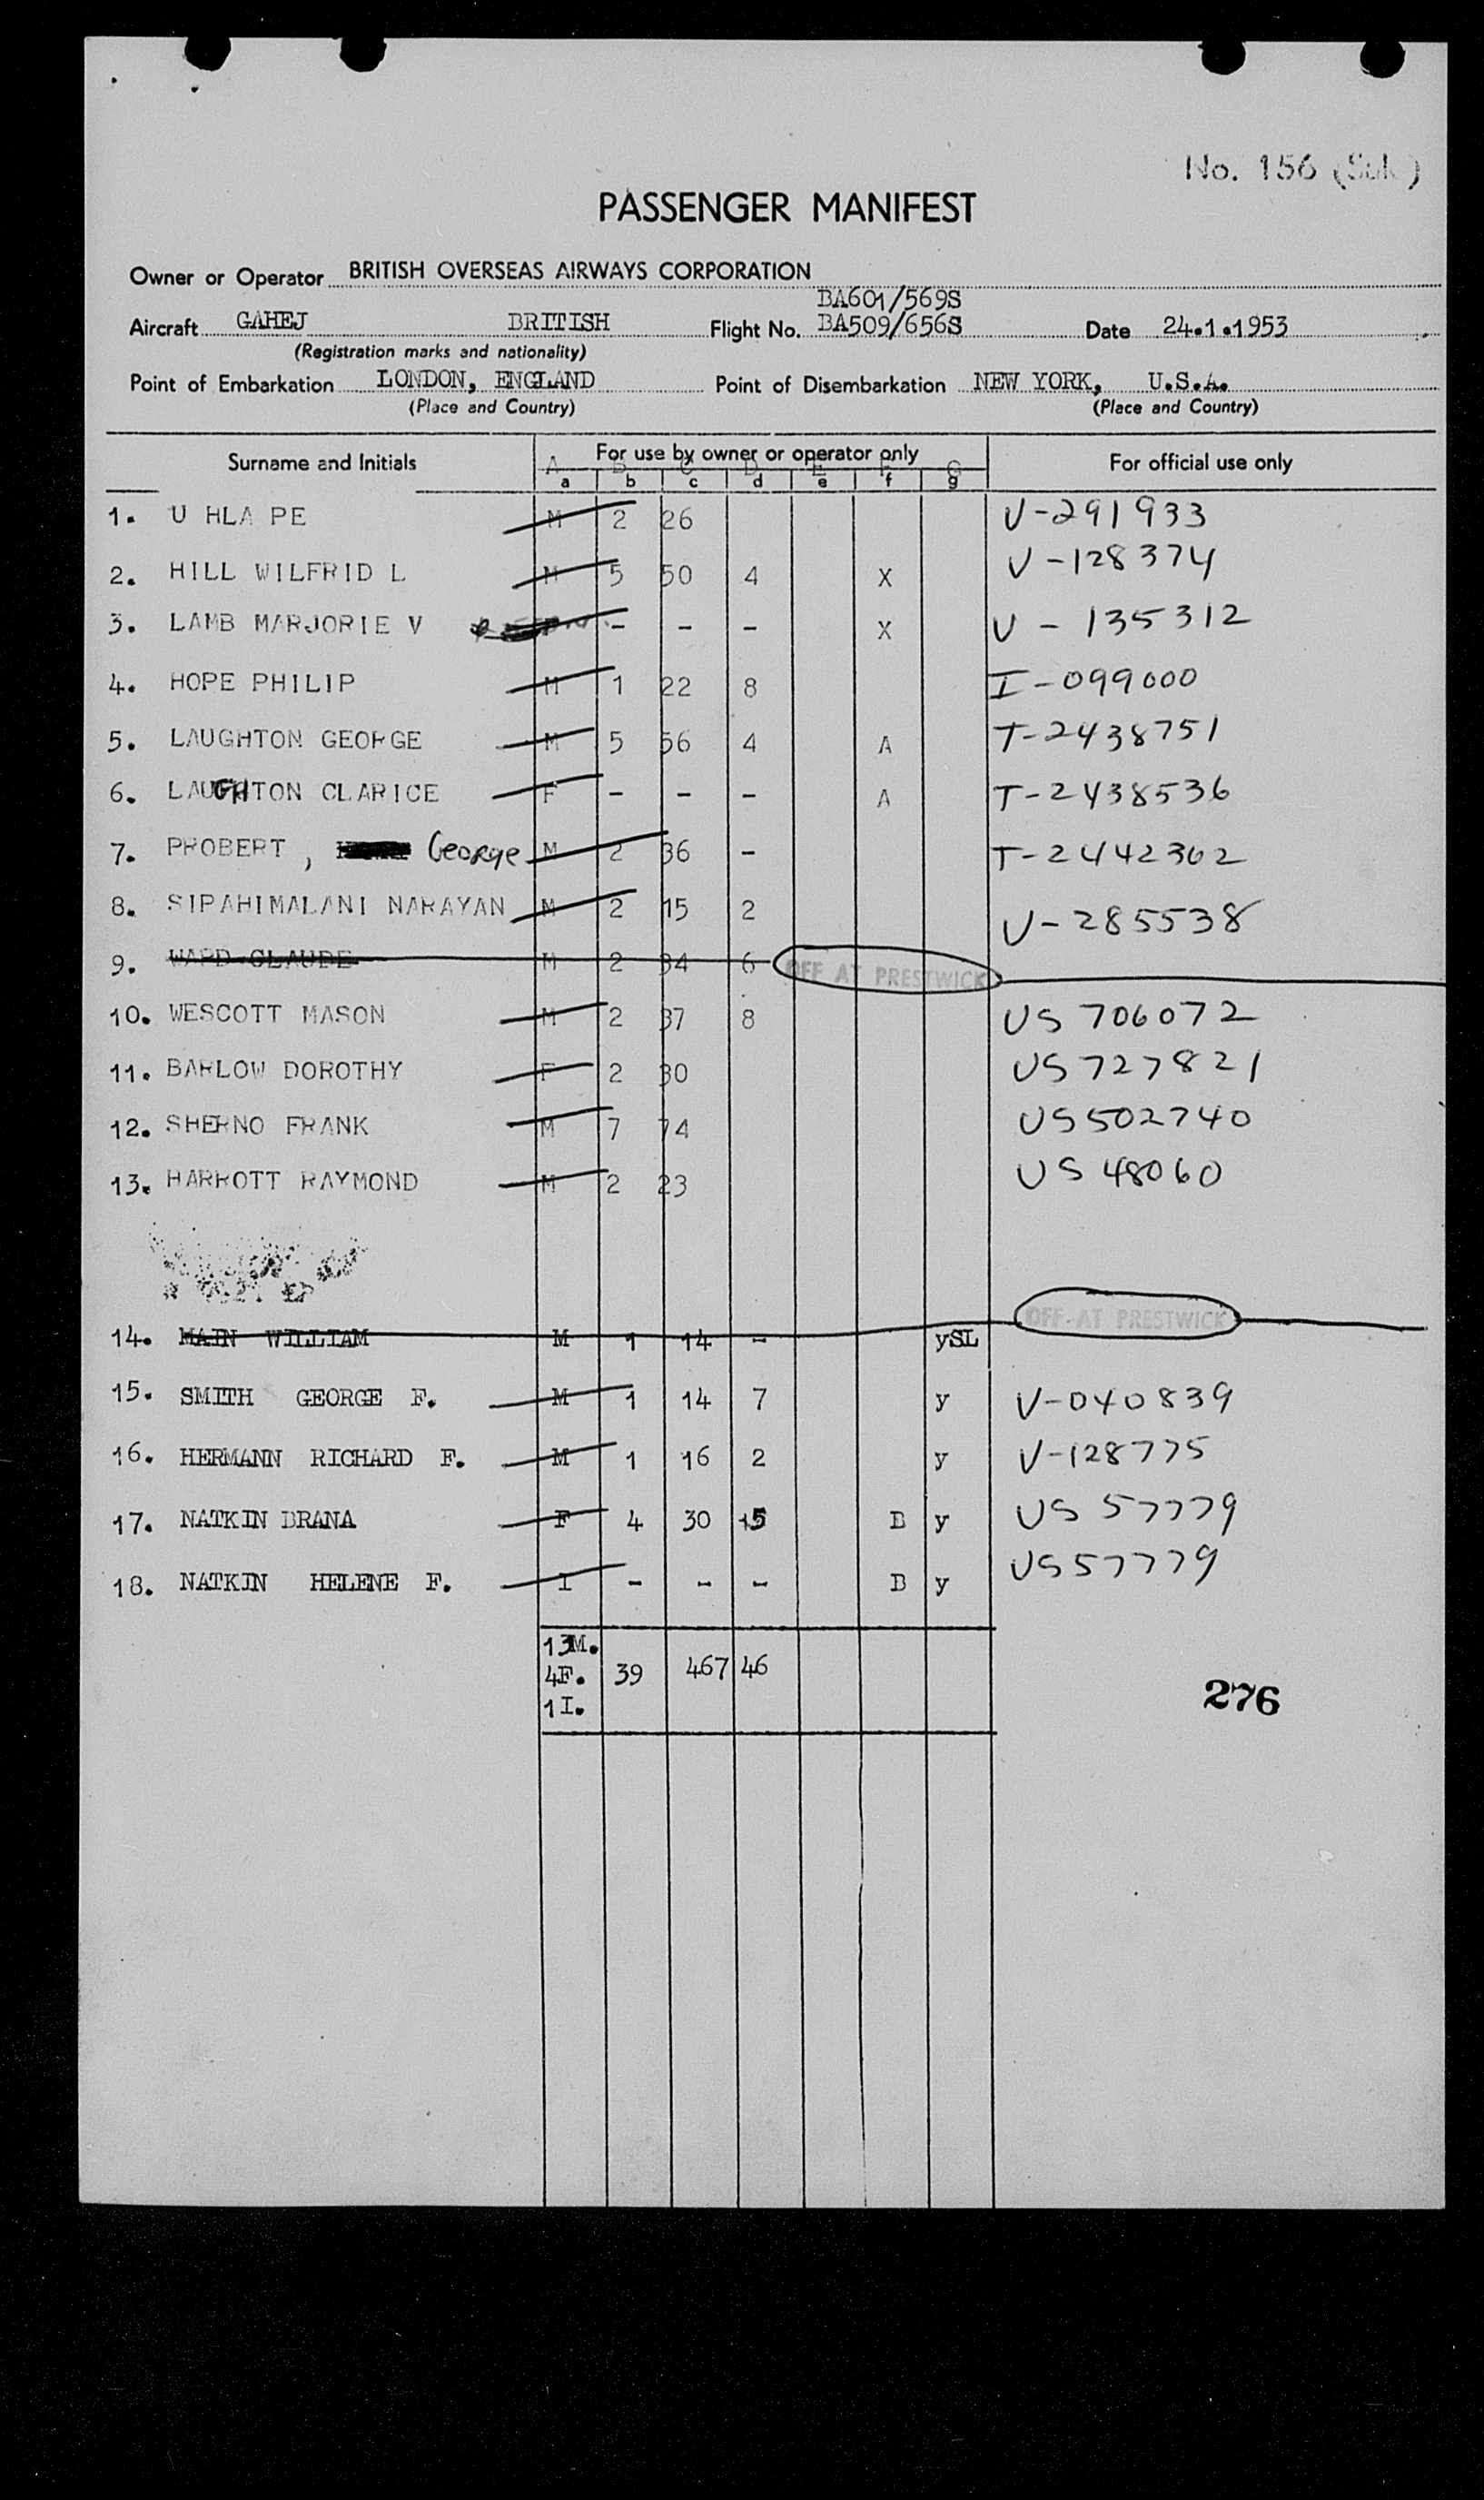 No. 156
PASSENGER MANIFEST
Owner or Operator BRITISH OVERSEAS AIRWAYS CORPORATION
BA601/569S
Aircraft GAHEJ BRITISH Flight No. BA509/656S Date 24.1.1953
(Registration marks and nationality)
Point of Embarkation LONDON, ENGLAND Point of Disembarkation NEW YORK, U.S.A.
(Place and Country) (Place and Country)
Surname and Initials For use by owner or operator only For official use only
A B C D E F G
a b c d e f g
1. U HLA PE M 2 26 V-291933
2. HILL WILFRID L M 5 50 4 X V-128374
3. LAMB MARJORIE V - - - X V-135312
4. HOPE PHILIP M 1 22 8 I-099000
5. LAUGHTON GEORGE M 5 56 4 A T-2438751
6. LAUGHTON CLARICE F - - - A T-2438536
7. PROBERT, George M 2 36 - T-2442362
8. SIPAHIMALANI NARAYAN M 2 15 2 V-285538
9. WARD CLAUDE M 2 34 6 OFF AT PRESTWICK
10. WESCOTT MASON M 2 37 8 US 706072
11. BARLOW DOROTHY F 2 30 US 727821
12. SHERNO FRANK M 7 74 US 502740
13. HARROTT RAYMOND M 2 23 US 48060
14. MAIN WILLIAM M 1 14 - ySL OFF AT PRESTWICK
15. SMITH GEORGE F. M 1 14 7 y V-040839
16. HERMANN RICHARD F. M 1 16 2 y V-128775
17. NATKIN DRANA F 4 30 15 B y US 57779
18. NATKIN HELENE F. I - - - B y US 57779
13M.
4F. 39 467 46
1I.
276